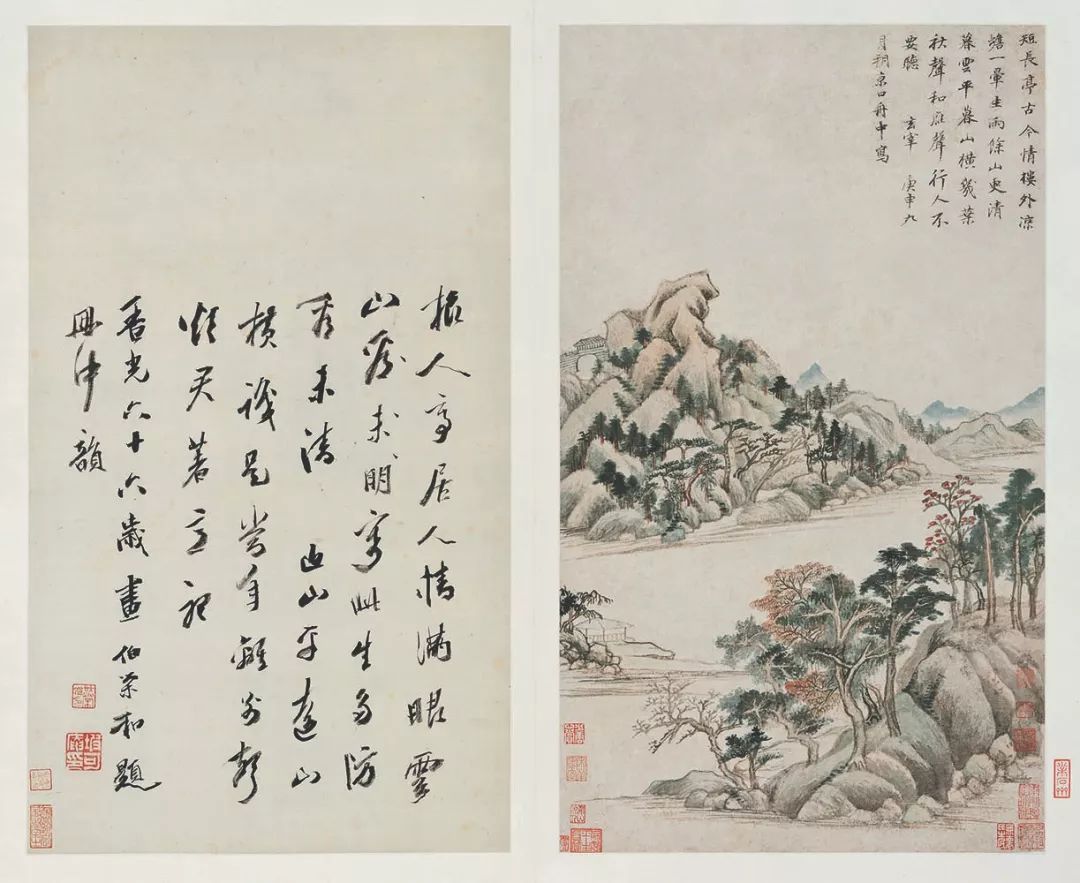 短長亭古今情樓外涼
蟾一暈生雨餘山更清
暮雲平暮山橫幾葉
秋聲和雁聲行人不
要聽 玄宰 庚申九
月朔京口舟中寫
人亭居人情滿眼雲
山未明此生
看未清 近山平遠山
橫是當年離別聲
君著意
香光六十六歲畫 伯榮和題
冊中韻